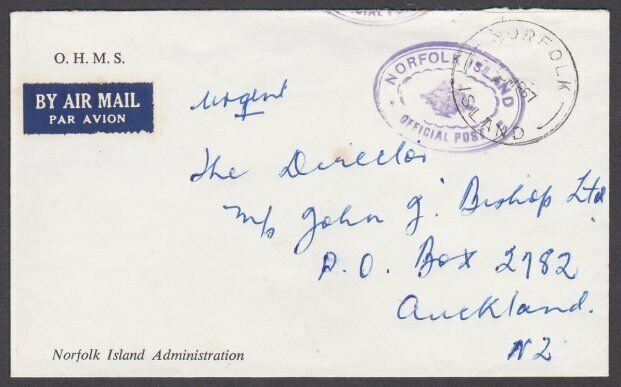 O. H. M. S.
BY AIR MAIL
PAR AVION
OFFICIAL POST
NORFOLK ISLAND
OFFICIAL POST
NORFOLK ISLAND
Urgent
The Director
M/s John J. Bishop Ltd
P. O. Box 2782
Auckland.
NZ
Norfolk Island Administration